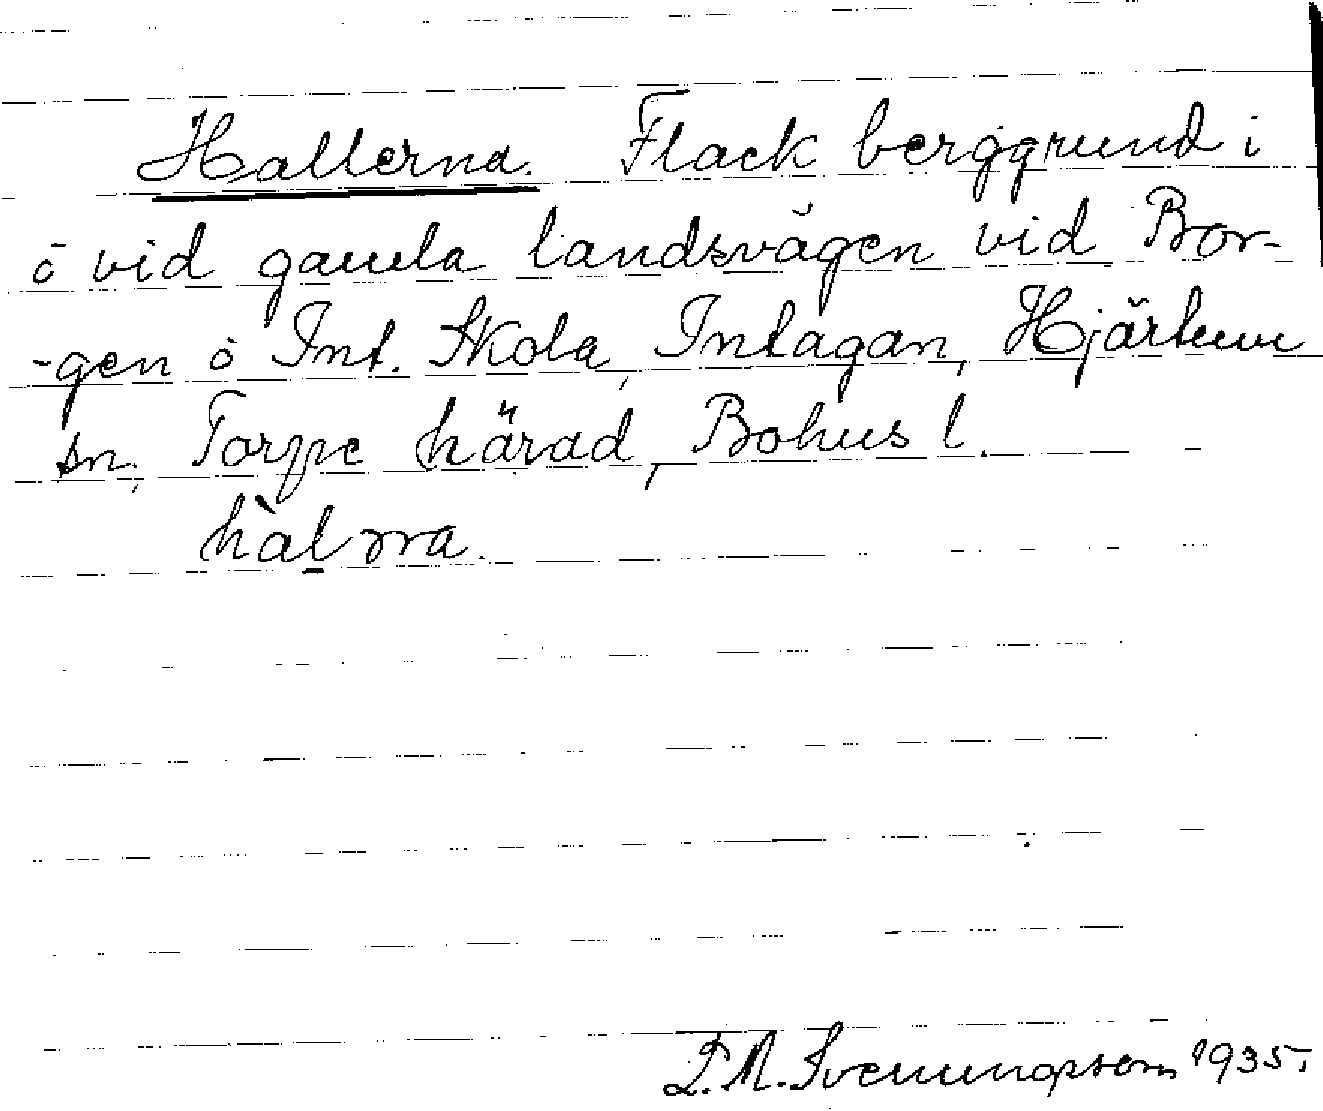 Hallerna. Flack berggrund i
ö vid gamla landsvägen vid Bor-
-gen ö Int. Skola, Intagan, Hjärtum
sn, Torpe härad, Bohusl.
hàlṛṛa.
F.M. Svenungsson, 1935.